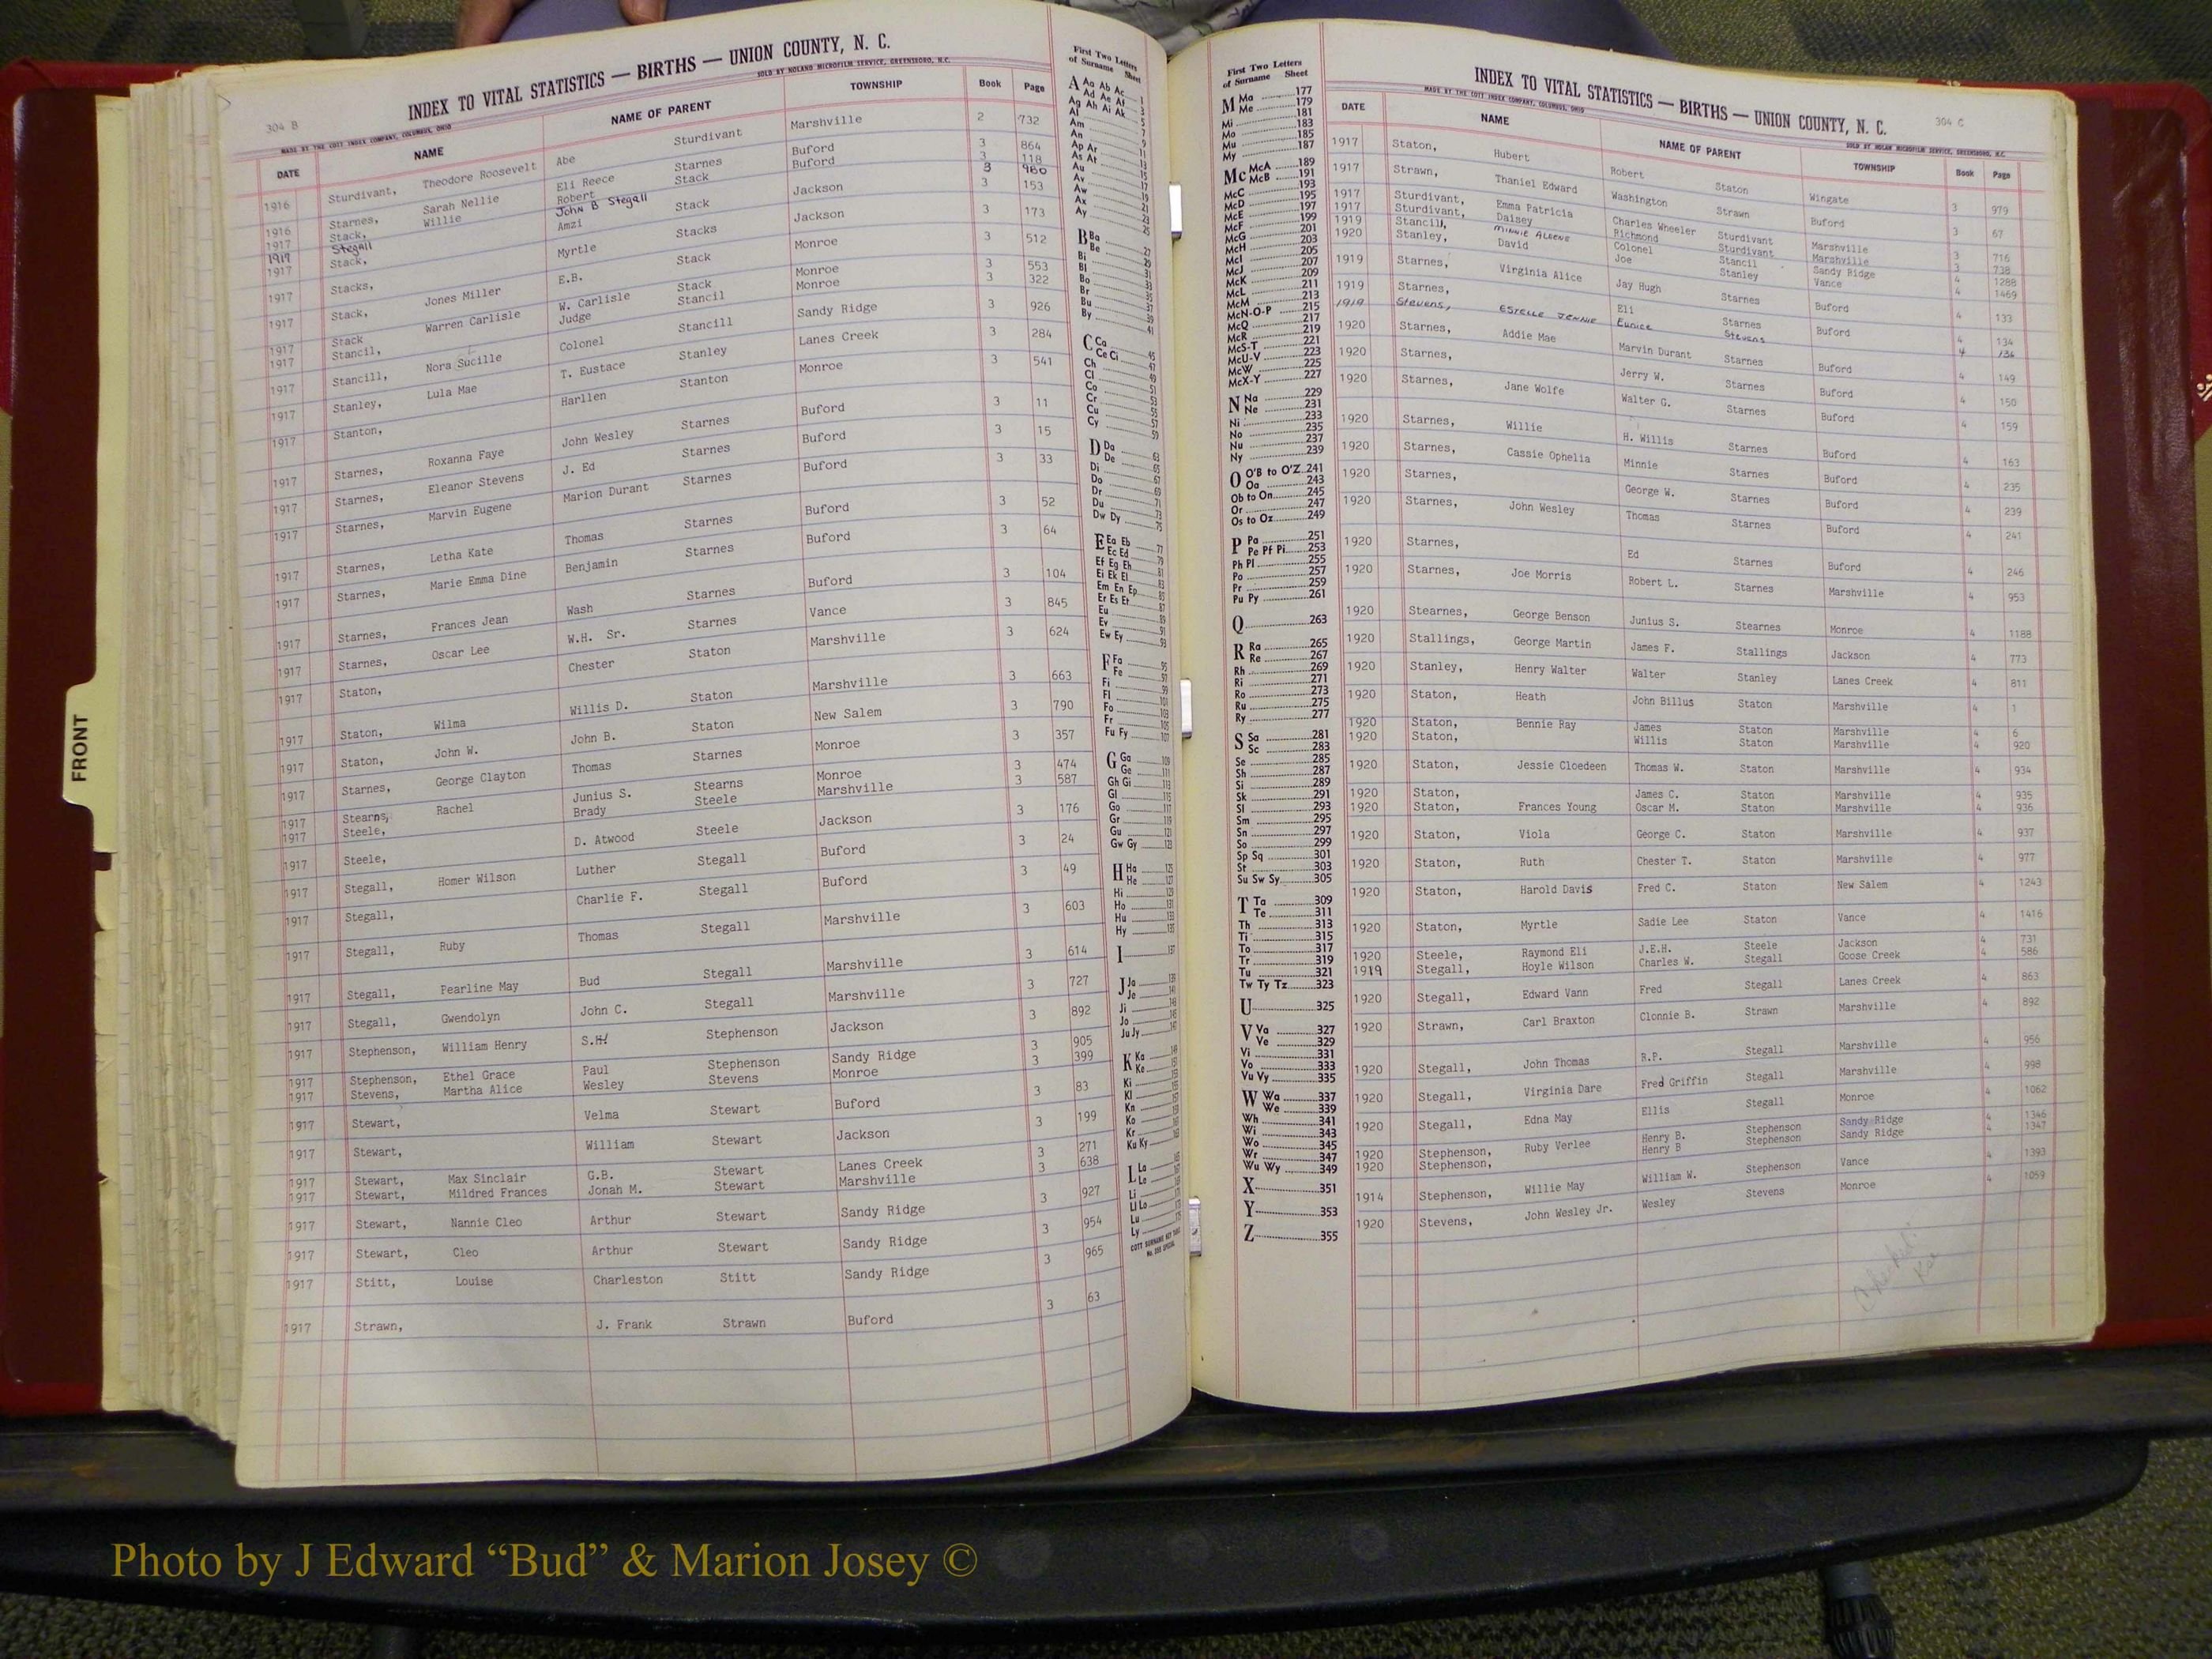 304 B
INDEX TO VITAL STATISTICS — BIRTHS — UNION COUNTY, N. C.
MADE BY THE COTT INDEX COMPANY, COLUMBUS, OHIO SOLD BY NOLAND MICROFILM SERVICE, GREENSBORO, N.C.
DATE NAME NAME OF PARENT TOWNSHIP Book Page
1916 Sturdivant, Theodore Roosevelt Abe Sturdivant Marshville 2 732
1916 Starnes, Sarah Nellie Eli Reece Starnes Buford 3 864
1917 Stack, Willie Robert Stack Buford 3 118
1917 Stegall John B Stegall 3 980
1917 Stack, Amzi Stack Jackson 3 153
1917 Stacks, Myrtle Stacks Jackson 3 173
1917 Stack, Jones Miller E.B. Stack Monroe 3 512
1917 Stack Warren Carlisle W. Carlisle Stack Monroe 3 553
1917 Stancil, Judge Stancil Monroe 3 322
1917 Stancill, Nora Sucille Colonel Stancill Sandy Ridge 3 926
1917 Stanley, Lula Mae T. Eustace Stanley Lanes Creek 3 284
1917 Stanton, Harllen Stanton Monroe 3 541
1917 Starnes, Roxanna Faye John Wesley Starnes Buford 3 11
1917 Starnes, Eleanor Stevens J. Ed Starnes Buford 3 15
1917 Starnes, Marvin Eugene Marion Durant Starnes Buford 3 33
1917 Starnes, Letha Kate Thomas Starnes Buford 3 52
1917 Starnes, Marie Emma Dine Benjamin Starnes Buford 3 64
1917 Starnes, Frances Jean Wash Starnes Buford 3 104
1917 Starnes, Oscar Lee W.H. Sr. Starnes Vance 3 845
1917 Staton, Chester Staton Marshville 3 624
1917 Staton, Wilma Willis D. Staton Marshville 3 663
1917 Staton, John W. John B. Staton New Salem 3 790
1917 Starnes, George Clayton Thomas Starnes Monroe 3 357
1917 Stearns, Rachel Junius S. Stearns Monroe 3 474
1917 Steele, Brady Steele Marshville 3 587
1917 Steele, D. Atwood Steele Jackson 3 176
1917 Stegall, Homer Wilson Luther Stegall Buford 3 24
1917 Stegall, Charlie F. Stegall Buford 3 49
1917 Stegall, Ruby Thomas Stegall Marshville 3 603
1917 Stegall, Pearline May Bud Stegall Marshville 3 614
1917 Stegall, Gwendolyn John C. Stegall Marshville 3 727
1917 Stephenson, William Henry S.H. Stephenson Jackson 3 892
1917 Stephenson, Ethel Grace Paul Stephenson Sandy Ridge 3 905
1917 Stevens, Martha Alice Wesley Stevens Monroe 3 399
1917 Stewart, Velma Stewart Buford 3 83
1917 Stewart, William Stewart Jackson 3 199
1917 Stewart, Max Sinclair G.B. Stewart Lanes Creek 3 271
1917 Stewart, Mildred Frances Jonah M. Stewart Marshville 3 638
1917 Stewart, Nannie Cleo Arthur Stewart Sandy Ridge 3 927
1917 Stewart, Cleo Arthur Stewart Sandy Ridge 3 954
1917 Stitt, Louise Charleston Stitt Sandy Ridge 3 965
1917 Strawn, J. Frank Strawn Buford 3 63
First Two Letters
of Surname Sheet
A Aa Ab Ac 1
Ad Ae Af 3
Ag Ah Ai Ak 5
Al 7
Am 9
An 11
Ap Ar 13
As At 15
Au 17
Av 19
Aw 21
Ax 23
Ay 25
B Ba 27
Be 29
Bi 31
Bl 33
Bo 35
Br 37
Bu 39
By 41
C Ca 45
Ce Ci 47
Ch 49
Cl 51
Co 53
Cr 55
Cu 57
Cy 59
D Da 63
De 65
Di 67
Do 69
Dr 71
Du 73
Dw Dy 75
E Ea Eb 77
Ec Ed 79
Ef Eg Eh 81
Ei Ek El 83
Em En Ep 85
Er Es Et 87
Eu 89
Ev 91
Ew Ey 93
F Fa 95
Fe 97
Fi 99
Fl 101
Fo 103
Fr 105
Fu Fy 107
G Ga 109
Ge 111
Gh Gi 113
Gl 115
Go 117
Gr 119
Gu 121
Gw Gy 123
H Ha 125
He 127
Hi 129
Ho 131
Hu 133
Hy 135
I 137
J Ja 139
Je 141
Ji 143
Jo 145
Ju Jy 147
K Ka 149
Ke
Ki
Kl
Kn
Ko
Kr
Ku Ky
L La
Le
Li
Ll Lo
Lu
Ly
First Two Letters
of Surname Sheet
M Ma 177
Me 179
Mi 181
Mo 183
Mu 185
My 187
Mc McA 189
McB 191
McC 193
McD 195
McE 197
McF 199
McG 201
McH 203
McI 205
McJ 207
McK 209
McL 211
McM 213
McN-O-P 215
McQ 217
McR 219
McS-T 221
McU-V 223
McW 225
McX-Y 227
N Na 229
Ne 231
Ni 233
No 235
Nu 237
Ny 239
O O'B to O'Z 241
Oa 243
Ob to On 245
Or 247
Os to Oz 249
P Pa 251
Pe Pf Pi 253
Ph Pl 255
Po 257
Pr 259
Pu Py 261
Q 263
R Ra 265
Re 267
Rh 269
Ri 271
Ro 273
Ru 275
Ry 277
S Sa 281
Sc 283
Se 285
Sh 287
Si 289
Sk 291
Sl 293
Sm 295
Sn 297
So 299
Sp Sq 301
St 303
Su Sw Sy 305
T Ta 309
Te 311
Th 313
Ti 315
To 317
Tr 319
Tu 321
Tw Ty Tz 323
U 325
V Va 327
Ve 329
Vi 331
Vo 333
Vu Vy 335
W Wa 337
We 339
Wh 341
Wi 343
Wo 345
Wr 347
Wu Wy 349
X 351
Y 353
Z 355
INDEX TO VITAL STATISTICS — BIRTHS — UNION COUNTY, N. C.
304 C
MADE BY THE COTT INDEX COMPANY, COLUMBUS, OHIO SOLD BY NOLAN MICROFILM SERVICE, GREENSBORO, N.C.
DATE NAME NAME OF PARENT TOWNSHIP Book Page
1917 Staton, Hubert Robert Staton Wingate 3 979
1917 Strawn, Thaniel Edward Washington Strawn Buford 3 67
1917 Sturdivant, Emma Patricia Charles Wheeler Sturdivant Marshville 3 716
1917 Sturdivant, Daisey Richmond Sturdivant Marshville 3 738
1919 Stancill, MINNIE ALEENE Colonel Stancil Sandy Ridge 4 1288
1920 Stanley, David Joe Stanley Vance 4 1469
1919 Starnes, Virginia Alice Jay Hugh Starnes Buford 4 133
1919 Starnes, Eli Starnes Buford 4 134
1919 Stevens, ESTELLE JENNIE Eunice Stevens 4 136
1920 Starnes, Addie Mae Marvin Durant Starnes Buford 4 149
1920 Starnes, Jerry W. Starnes Buford 4 150
1920 Starnes, Jane Wolfe Walter G. Starnes Buford 4 159
1920 Starnes, Willie H. Willis Starnes Buford 4 163
1920 Starnes, Cassie Ophelia Minnie Starnes Buford 4 235
1920 Starnes, George W. Starnes Buford 4 239
1920 Starnes, John Wesley Thomas Starnes Buford 4 241
1920 Starnes, Ed Starnes Buford 4 246
1920 Starnes, Joe Morris Robert L. Starnes Marshville 4 953
1920 Stearnes, George Benson Junius S. Stearnes Monroe 4 1188
1920 Stallings, George Martin James F. Stallings Jackson 4 773
1920 Stanley, Henry Walter Walter Stanley Lanes Creek 4 811
1920 Staton, Heath John Billus Staton Marshville 4 1
1920 Staton, Bennie Ray James Staton Marshville 4 6
1920 Staton, Willis Staton Marshville 4 920
1920 Staton, Jessie Cloedeen Thomas W. Staton Marshville 4 934
1920 Staton, James C. Staton Marshville 4 935
1920 Staton, Frances Young Oscar M. Staton Marshville 4 936
1920 Staton, Viola George C. Staton Marshville 4 937
1920 Staton, Ruth Chester T. Staton Marshville 4 977
1920 Staton, Harold Davis Fred C. Staton New Salem 4 1243
1920 Staton, Myrtle Sadie Lee Staton Vance 4 1416
1920 Steele, Raymond Eli J.E.H. Steele Jackson 4 731
1919 Stegall, Hoyle Wilson Charles W. Stegall Goose Creek 4 586
1920 Stegall, Edward Vann Fred Stegall Lanes Creek 4 863
1920 Strawn, Carl Braxton Clonnie B. Strawn Marshville 4 892
1920 Stegall, John Thomas R.P. Stegall Marshville 4 956
1920 Stegall, Virginia Dare Fred Griffin Stegall Marshville 4 998
1920 Stegall, Edna May Ellis Stegall Monroe 4 1062
1920 Stephenson, Ruby Verlee Henry B. Stephenson Sandy Ridge 4 1346
1920 Stephenson, Henry B Stephenson Sandy Ridge 4 1347
1914 Stephenson, Willie May William W. Stephenson Vance 4 1393
1920 Stevens, John Wesley Jr. Wesley Stevens Monroe 4 1059
FRONT
Photo by J Edward “Bud” & Marion Josey ©